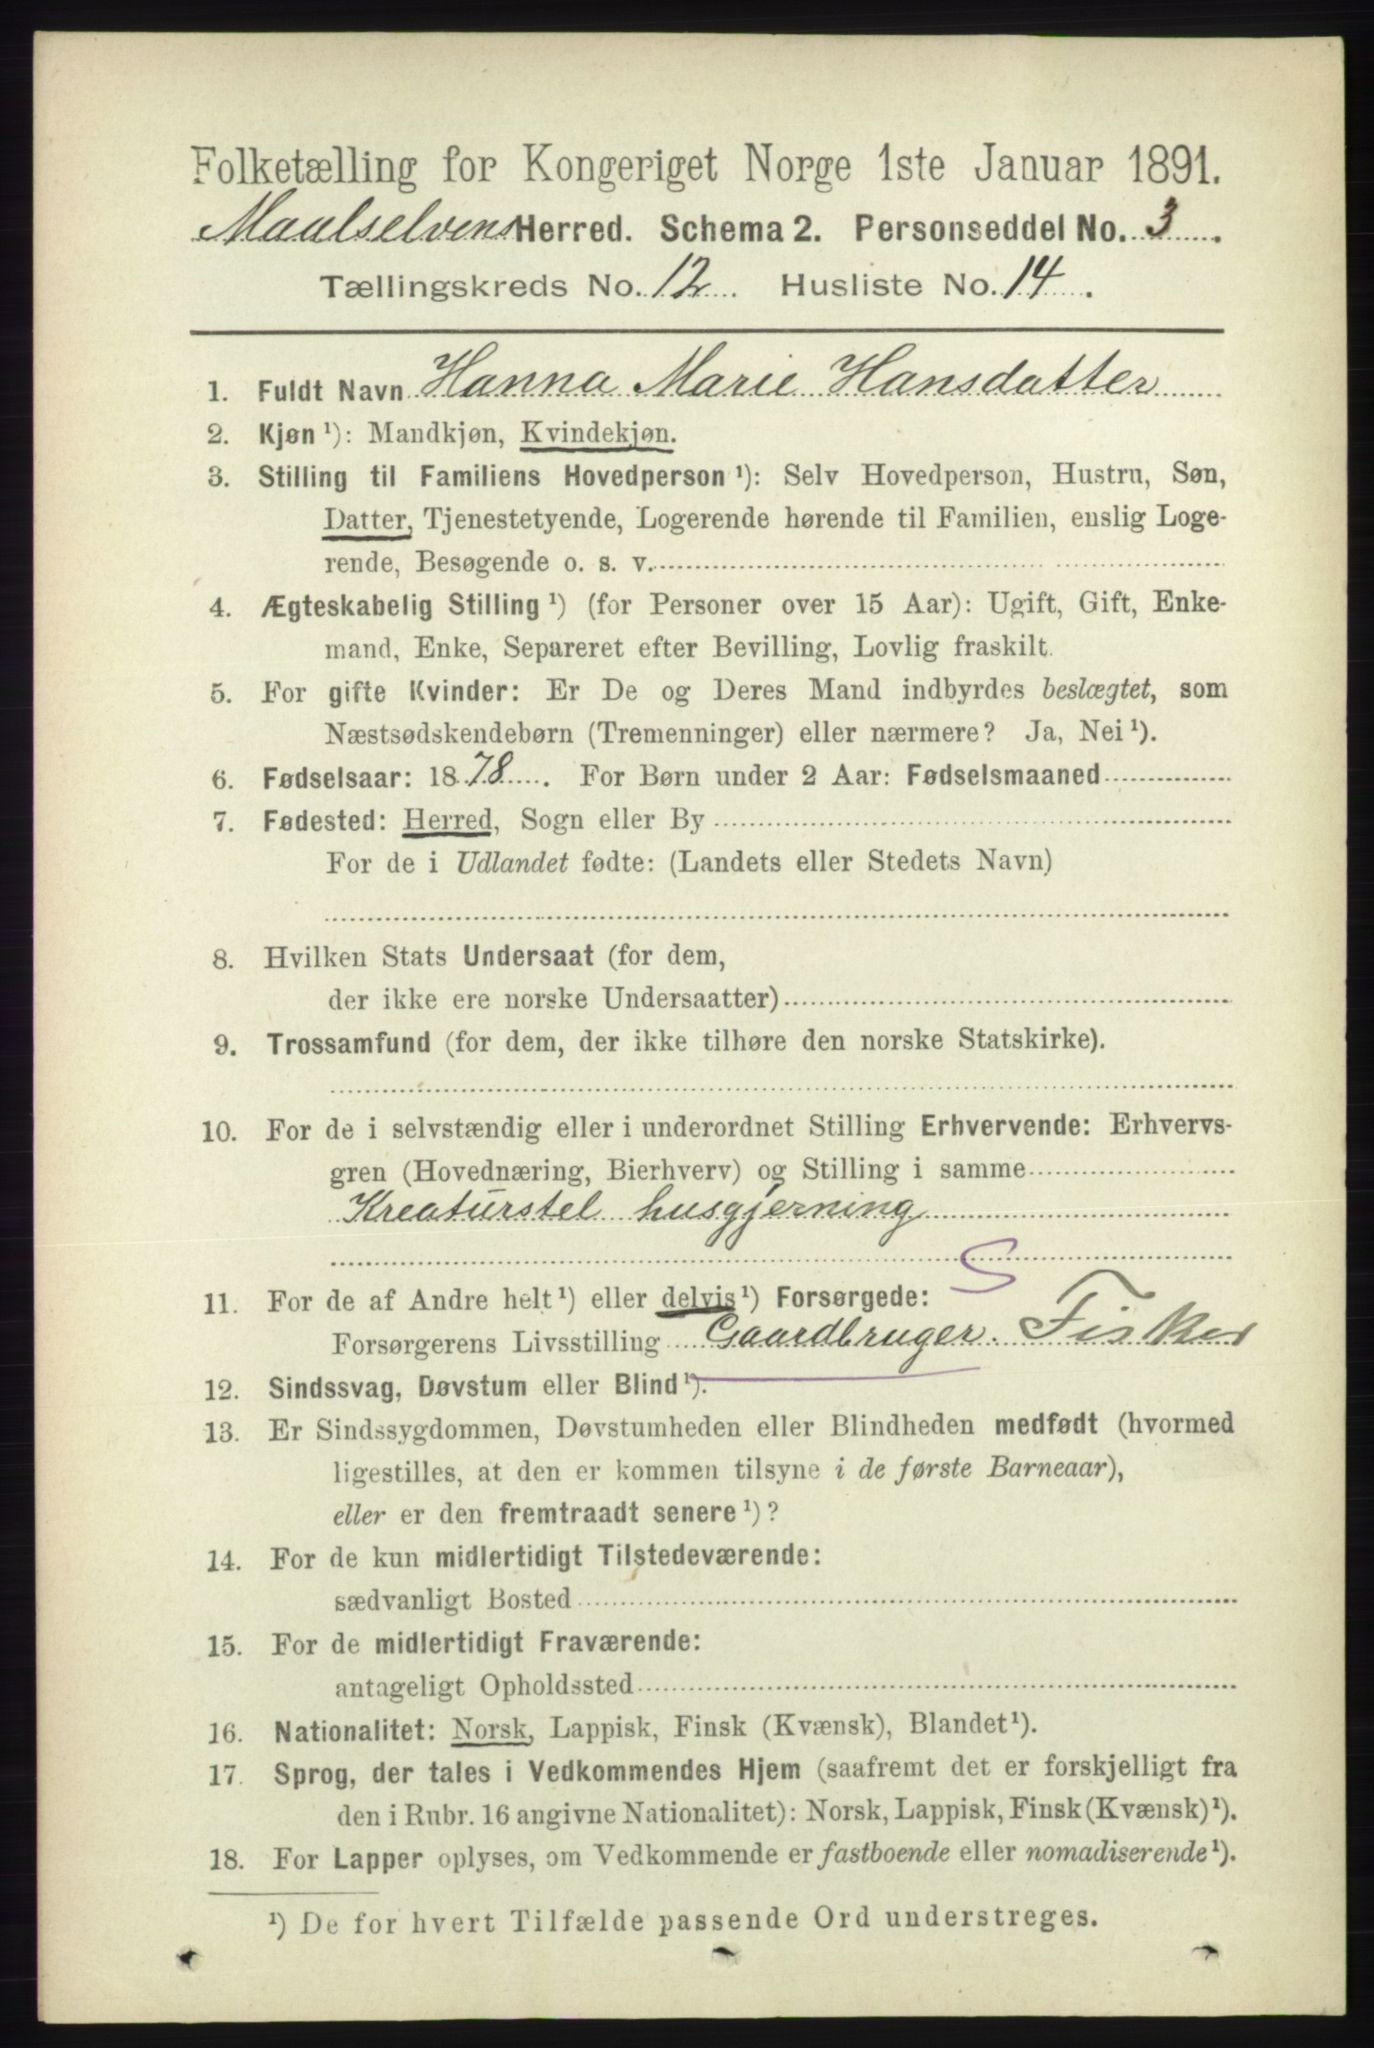 Folketælling for Kongeriget Norge 1ste Januar 1891.
Maalselvens Herred. Schema 2. Personseddel No. 3.
Tællingskreds No. 12. Husliste No. 14.
1. Fuldt Navn Hanna Marie Hansdatter
2. Kjøn ¹): Mandkjøn, Kvindekjøn.
3. Stilling til Familiens Hovedperson ¹): Selv Hovedperson, Hustru, Søn,
Datter, Tjenestetyende, Logerende hørende til Familien, enslig Loge-
rende, Besøgende o. s. v.
4. Ægteskabelig Stilling ¹) (for Personer over 15 Aar): Ugift, Gift, Enke-
mand, Enke, Separeret efter Bevilling, Lovlig fraskilt.
5. For gifte Kvinder: Er De og Deres Mand indbyrdes beslægtet, som
Næstsødskendebørn (Tremenninger) eller nærmere? Ja, Nei ¹).
6. Fødselsaar: 1878. For Børn under 2 Aar: Fødselsmaaned
7. Fødested: Herred, Sogn eller By
For de i Udlandet fødte: (Landets eller Stedets Navn)
8. Hvilken Stats Undersaat (for dem,
der ikke ere norske Undersaatter)
9. Trossamfund (for dem, der ikke tilhøre den norske Statskirke).
10. For de i selvstændig eller i underordnet Stilling Erhvervende: Erhvervs-
gren (Hovednæring, Bierhverv) og Stilling i samme
Kreaturstel husgjerning
S
11. For de af Andre helt ¹) eller delvis ¹) Forsørgede:
Forsørgerens Livsstilling Gaardbruger. Fisker
12. Sindssvag, Døvstum eller Blind ¹).
13. Er Sindssygdommen, Døvstumheden eller Blindheden medfødt (hvormed
ligestilles, at den er kommen tilsyne i de første Barneaar),
eller er den fremtraadt senere ¹)?
14. For de kun midlertidigt Tilstedeværende:
sædvanligt Bosted
15. For de midlertidigt Fraværende:
antageligt Opholdssted
16. Nationalitet: Norsk, Lappisk, Finsk (Kvænsk), Blandet ¹).
17. Sprog, der tales i Vedkommendes Hjem (saafremt det er forskjelligt fra
den i Rubr. 16 angivne Nationalitet): Norsk, Lappisk, Finsk (Kvænsk) ¹).
18. For Lapper oplyses, om Vedkommende er fastboende eller nomadiserende ¹).
¹) De for hvert Tilfælde passende Ord understreges.